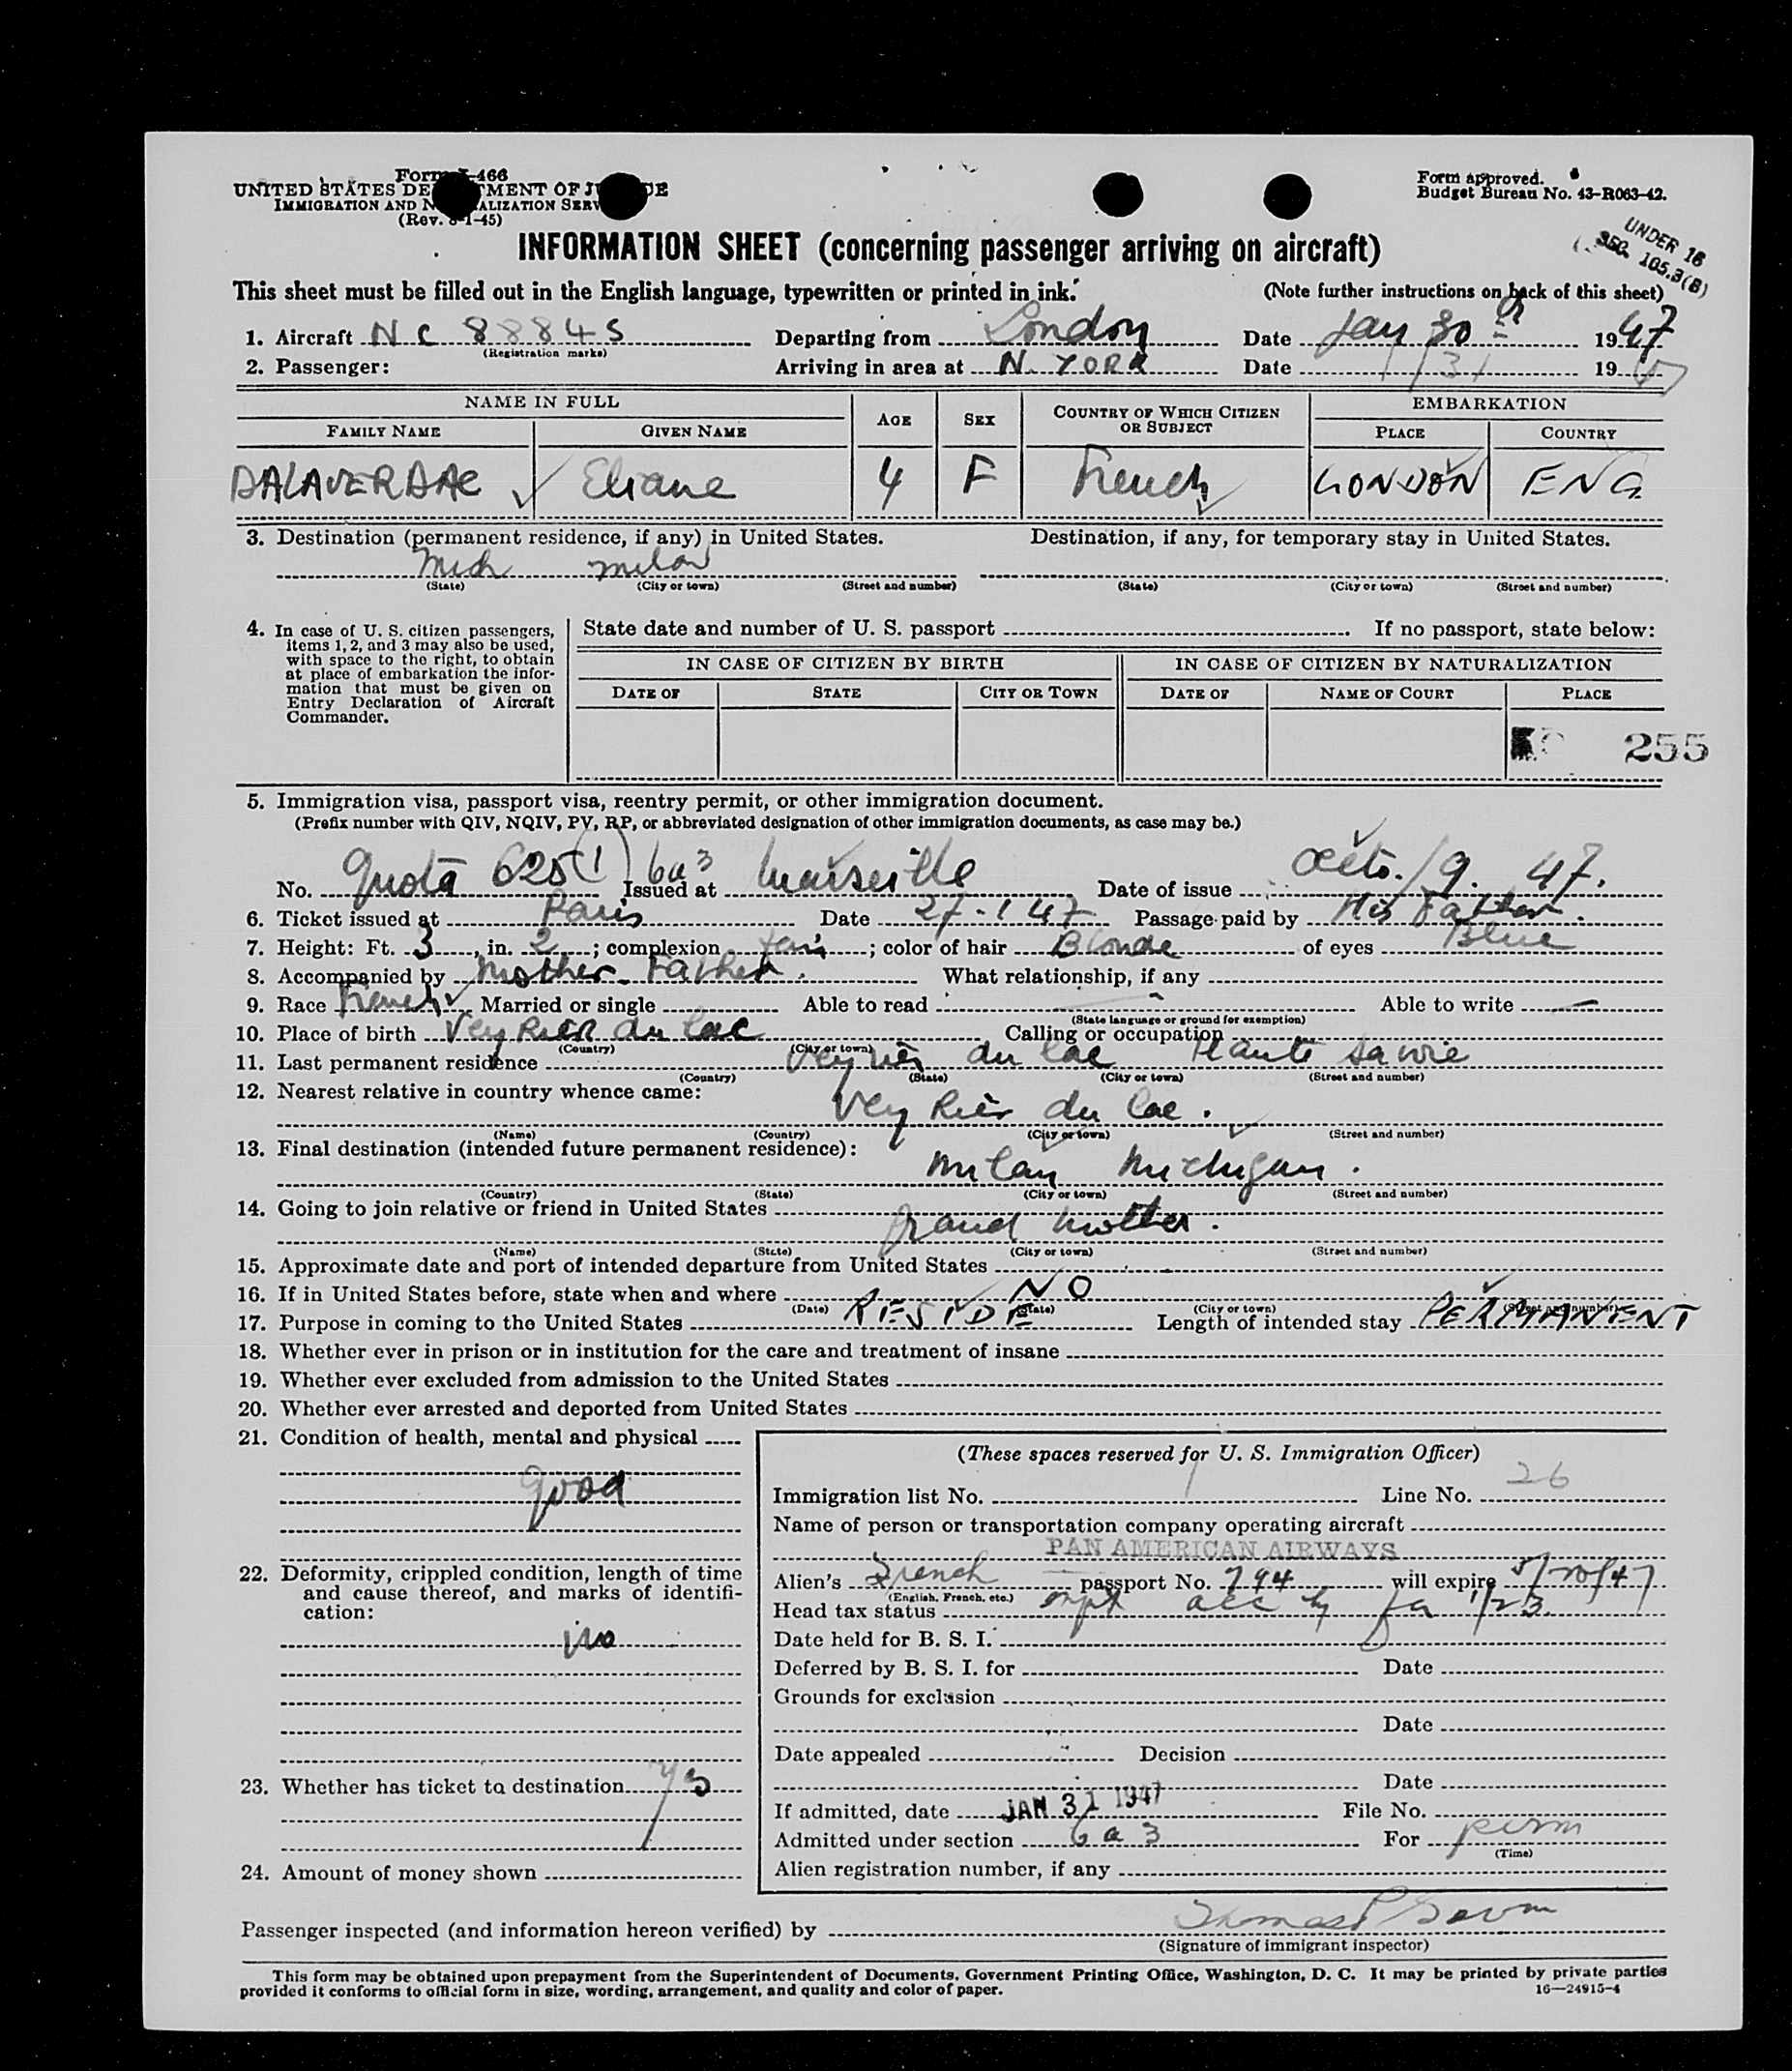 Form I-466
UNITED STATES DEPARTMENT OF JUSTICE
IMMIGRATION AND NATURALIZATION SERV
(Rev. 8-1-45)
Form approved.
Budget Bureau No. 43-R063-42.
UNDER 16
SEC. 105.3(B)
INFORMATION SHEET (concerning passenger arriving on aircraft)
This sheet must be filled out in the English language, typewritten or printed in ink. (Note further instructions on back of this sheet)
1. Aircraft NC 88845 Departing from London Date Jan 30th 1947
(Registration marks)
2. Passenger: Arriving in area at N. YORK Date 1/31 1947
NAME IN FULL AGE SEX COUNTRY OF WHICH CITIZEN OR SUBJECT EMBARKATION
FAMILY NAME GIVEN NAME PLACE COUNTRY
DALAVERDAC Eliane 4 F French LONDON ENG.
3. Destination (permanent residence, if any) in United States. Destination, if any, for temporary stay in United States.
Mich Milan
(State) (City or town) (Street and number) (State) (City or town) (Street and number)
4. In case of U. S. citizen passengers, items 1, 2, and 3 may also be used, with space to the right, to obtain at place of embarkation the information that must be given on Entry Declaration of Aircraft Commander.
State date and number of U. S. passport If no passport, state below:
IN CASE OF CITIZEN BY BIRTH IN CASE OF CITIZEN BY NATURALIZATION
DATE OF STATE CITY OR TOWN DATE OF NAME OF COURT PLACE
255
5. Immigration visa, passport visa, reentry permit, or other immigration document.
(Prefix number with QIV, NQIV, PV, RP, or abbreviated designation of other immigration documents, as case may be.)
No. Quota 625(1) 6a3 Issued at Marseille Date of issue 9. 47.
6. Ticket issued at Paris Date 27-1 47 Passage paid by His Father.
7. Height: Ft. 3, in. 2; complexion fair; color of hair Blonde of eyes Blue
8. Accompanied by Mother Father. What relationship, if any
9. Race French Married or single Able to read Able to write
(State language or ground for exemption)
10. Place of birth Veyrier du Lac Calling or occupation
(Country) (City or town)
11. Last permanent residence Veyrier du Lac Haute Savoie
(Country) (State) (City or town) (Street and number)
12. Nearest relative in country whence came:
Veyrier du Lac.
(Name) (Country) (City or town) (Street and number)
13. Final destination (intended future permanent residence):
Milan Michigan.
(Country) (State) (City or town) (Street and number)
14. Going to join relative or friend in United States
Grand Mother.
(Name) (State) (City or town) (Street and number)
15. Approximate date and port of intended departure from United States
16. If in United States before, state when and where NO
(Date) (State) (City or town) (Street and number)
17. Purpose in coming to the United States RESIDE Length of intended stay PERMANENT
18. Whether ever in prison or in institution for the care and treatment of insane
19. Whether ever excluded from admission to the United States
20. Whether ever arrested and deported from United States
21. Condition of health, mental and physical
good
22. Deformity, crippled condition, length of time and cause thereof, and marks of identification:
no
23. Whether has ticket to destination yes
24. Amount of money shown
(These spaces reserved for U. S. Immigration Officer)
Immigration list No. 1 Line No. 26
Name of person or transportation company operating aircraft
PAN AMERICAN AIRWAYS
Alien's French passport No. 794 will expire 5/20/47
(English, French, etc.)
Head tax status acc by fa 1/23
Date held for B. S. I.
Deferred by B. S. I. for Date
Grounds for exclusion
Date
Date appealed Decision
Date
If admitted, date JAN 31 1947 File No.
Admitted under section 6a3 For perm
(Time)
Alien registration number, if any
Passenger inspected (and information hereon verified) by Thomas P
(Signature of immigrant inspector)
This form may be obtained upon prepayment from the Superintendent of Documents, Government Printing Office, Washington, D. C. It may be printed by private parties
provided it conforms to official form in size, wording, arrangement, and quality and color of paper.
16—24915-4